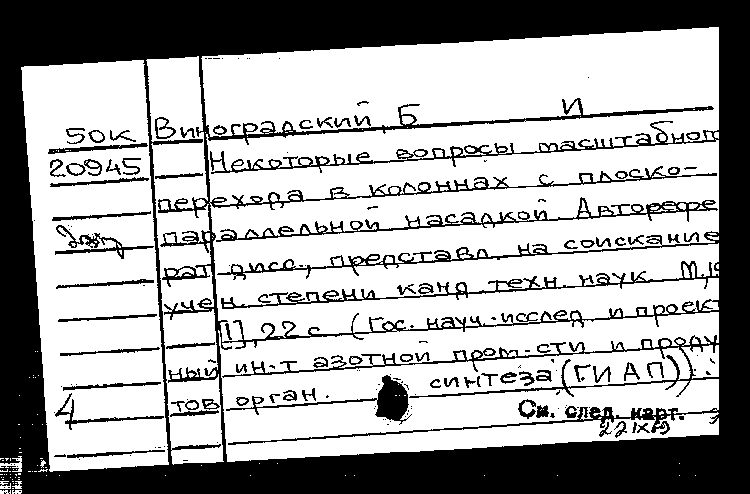 50к Виноградский, Б И
20945 Некоторые вопросы масштабног
перехода в колоннах с плоско-
параллельной насадкой Авторефе
рат дисс., представл. на соискание
учен. степени канд техн. наук. М, 19
[], 22 с (Гос. науч.-исслед. и проект
ный ин-т азотной пром-сти и проду
4 тов орган. синтеза (ГИАП)).
См. след. карт.
22 IX 69